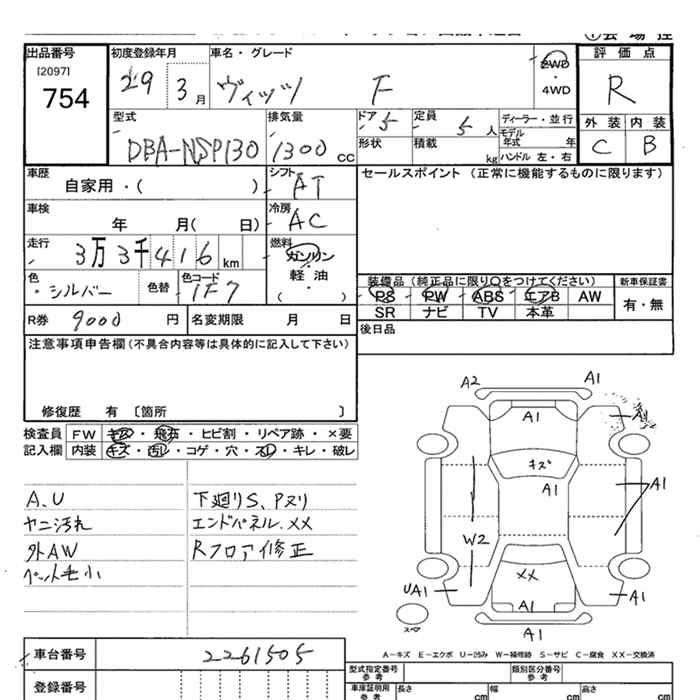 出品番号 初度登録年月 車名・グレード 2WD 評価点
[2097] 754 29 3月 ヴィッツ F 4WD R
型式 排気量 ドア 5 定員 5人 ディーラー・並行 外装 内装
DBA-NSP130 1300cc 形状 積載 kg モデル年式 年 C B
ハンドル 左・右
車歴 シフト AT セールスポイント（正常に機能するものに限ります）
自家用・（ ）
車検 冷房 AC
年 月（ 日）
走行 燃料 ガソリン
3万3千416km 軽・油
（ ）
色 色替 色コード 装備品（純正品に限り○をつけてください） 新車保証書
・シルバー 1F7 PS PW ABS エアB AW 有・無
SR ナビ TV 本革
R券 9000円 名変期限 月 日 後日品
注意事項申告欄（不具合内容等は具体的に記入して下さい）
修復歴 有 〔箇所 〕
検査員 FW キズ・飛石・ヒビ割・リペア跡・×要
記入欄 内装 キズ・汚レ・コゲ・穴・スレ・キレ・破レ
A.U 下廻りS、Pヌリ
ヤニ汚れ エンドパネル.XX
外AW Rフロア修正
ペット毛小
A2 A1
A1 A1
キズ
A1 A1
W2
XX
UA1 A1 A1
A1
スペア
A－キズ E－エクボ U－凹み W－補修跡 S－サビ C－腐食 XX－交換済
車台番号 2261505
登録番号
型式指定番号 参考 類別区分番号 参考
車庫証明用 参考 長さ cm 幅 cm 高さ cm